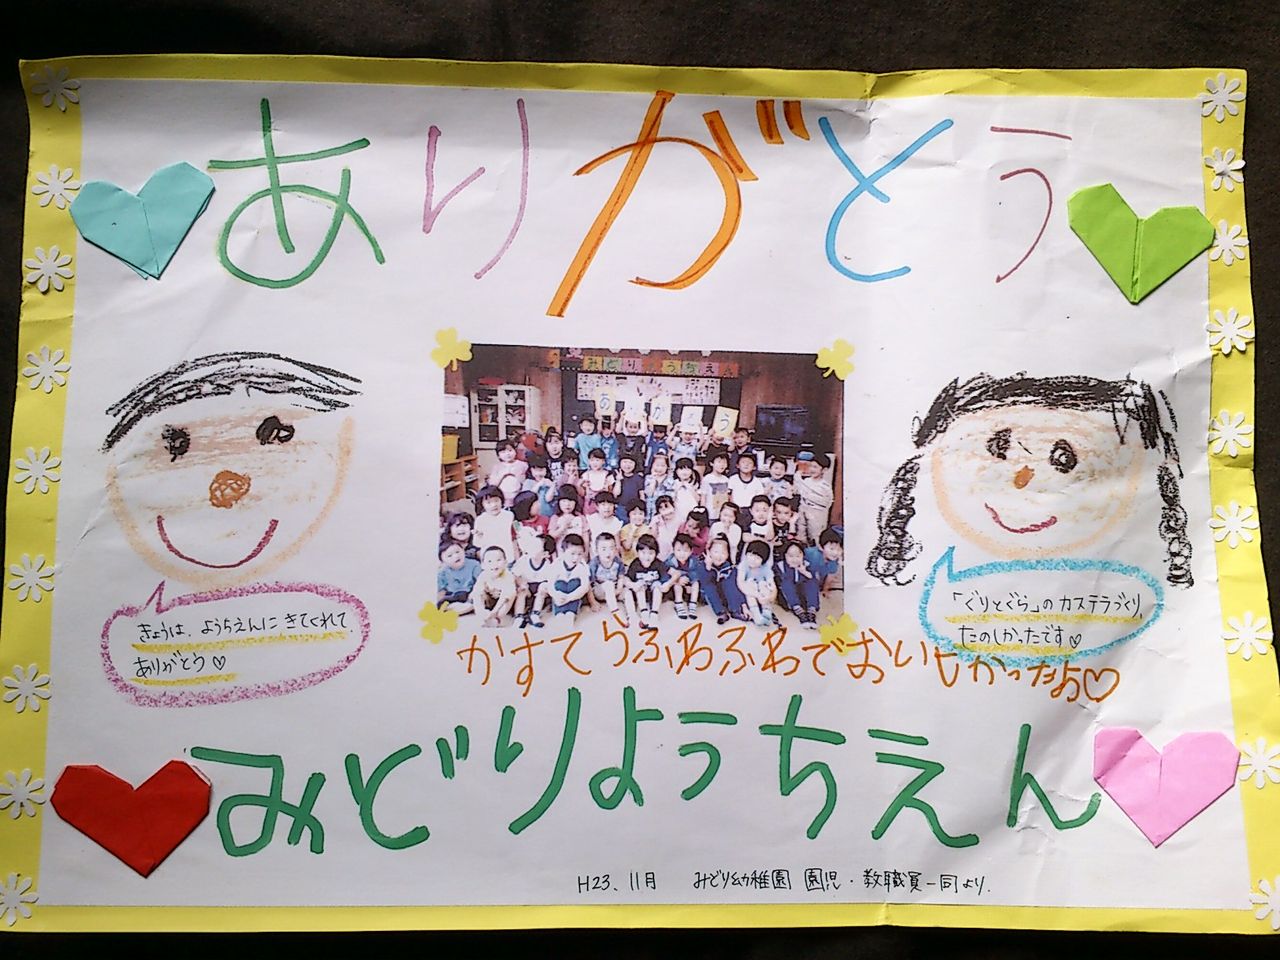 ありがとう
みどりようちえん
ありがとう
きょうは、ようちえんに きてくれて、
ありがとう♡
「ぐりとぐら」の カステラづくり、
たのしかったです♡
かすてらふわふわでおいしかったよ♡
みどりようちえん
H23、11月 みどり幼稚園 園児・教職員一同より.